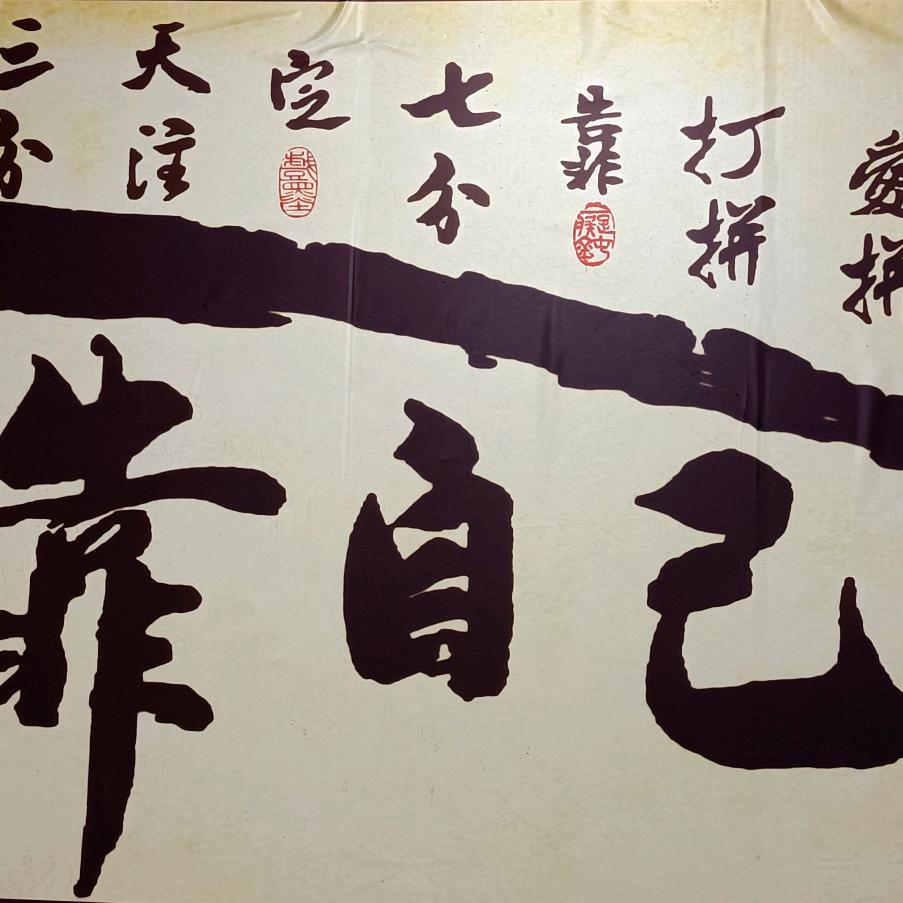 三分天注定七分靠打拼愛拼
靠自己